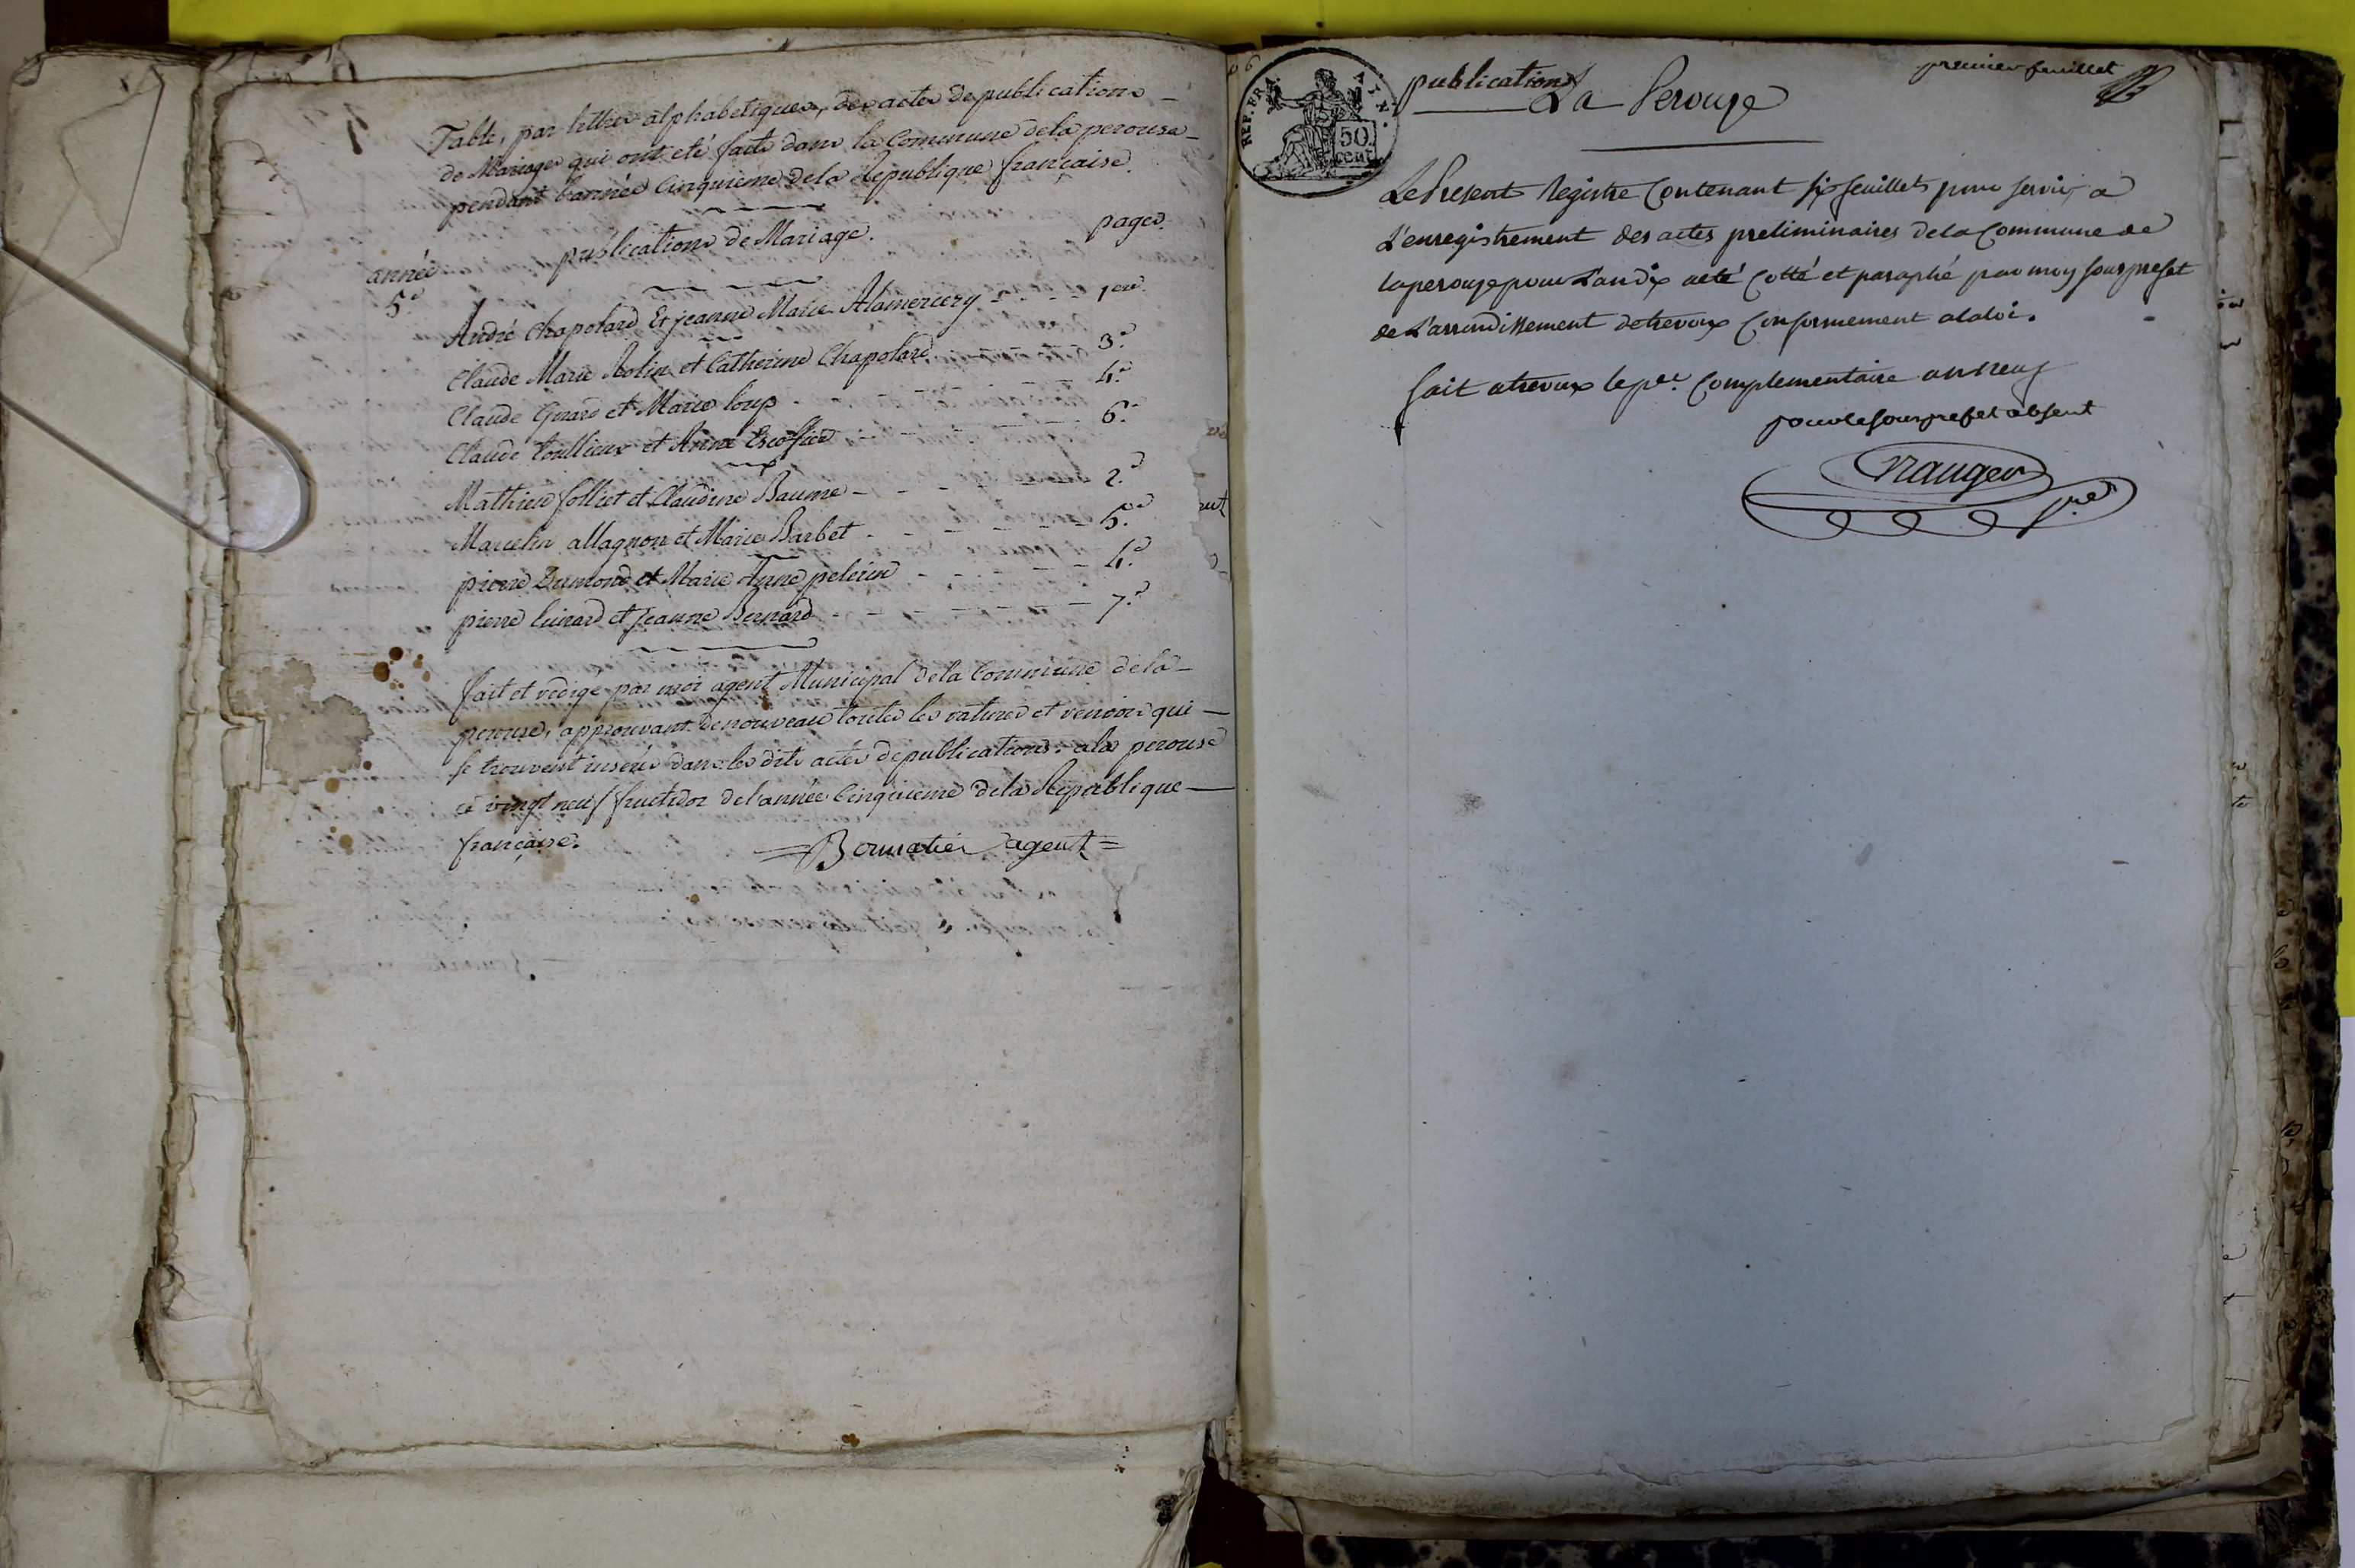 Table, par lettres alphabetiques, des actes de publications
de Mariage qui ont eté faits dans la Commune de la perouse
pendant l'année Cinquieme de la Republique française.
année publications de Mariage. pages.
5e
André Chapolard Et jeanne Marie Alamercery - - - 1ere
Claude Marie Rolin et Catherine Chapolard 3e
Claude Girard et Marie loup - - - 4e
Claude et Anne Escoffier - - 6e
Mathieu folliet et Claudine Baume - - - 2e
Marcelin allagnon et Marie Barbet - - - 5e
pierre Dumond et Marie Anne pelerin - - - 4e
pierre Guirard et jeanne Bernard - - - 7e
fait et redigé par moi agent Municipal de la Commune de la
perouse, approuvant de nouveau toutes les ratures et renvois qui
se trouvent inserés dans les dits actes de publications. a la perouse
ce vingt neuf fructidor de l'année Cinquieme de la Republique
française.
= agent =
REP. FRA. 50 cent
publications
La Perouze
premier feuillet
Le Present Registre Contenant six feuillets pour servir a
L'enregistrement des actes preliminaires de la Commune de
la perouze pour L'an dix a eté Cotté et paraphé par moy sous prefet
de L'arrondissement de trevoux Conformement a la loi.
fait a trevoux le per. Complementaire an neuf
pour le sous prefet absent